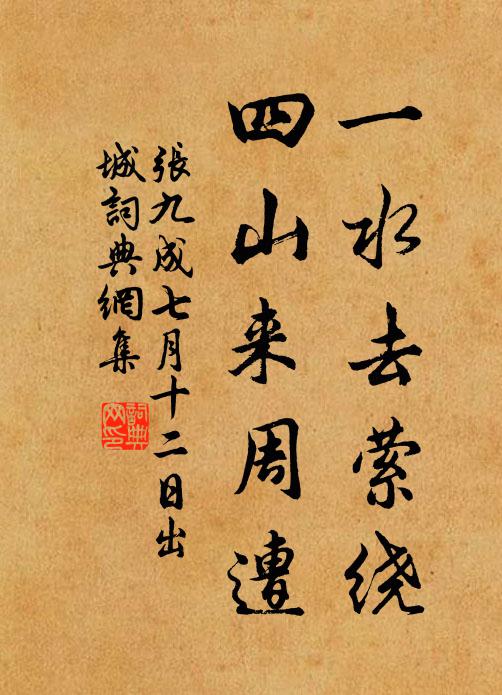 一水去萦绕
四山来周遭
張九成七月十二日出
城詞典網集
詞典网印